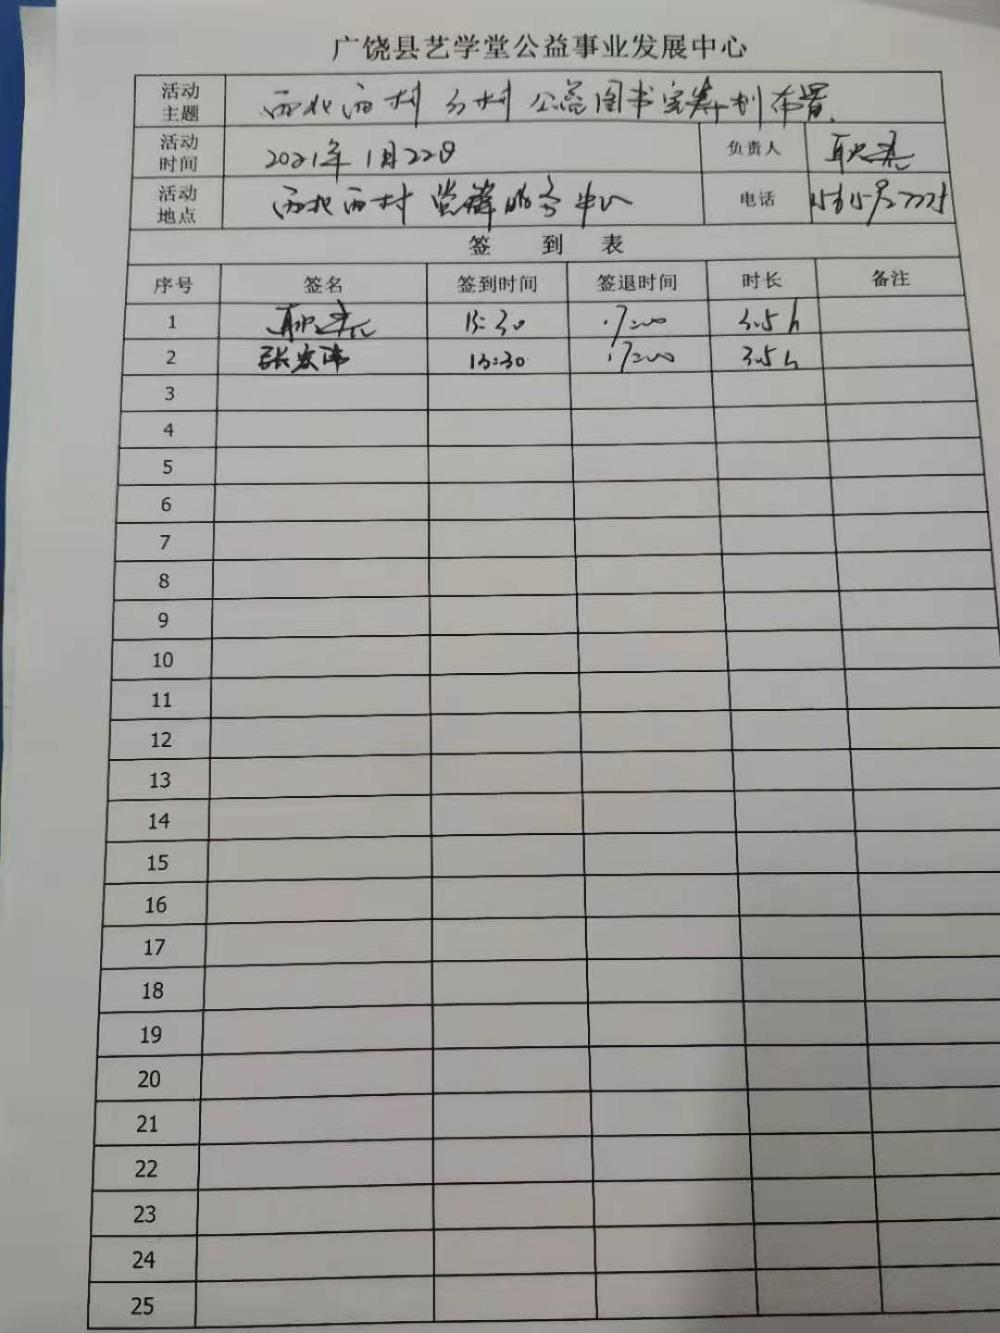 广饶县艺学堂公益事业发展中心
活动主题 西北西村 村 公益图书室筹划布置
活动时间 2021年1月22日 负责人
活动地点 西北西村党群服务中心 电话
签 到 表
序号 签名 签到时间 签退时间 时长 备注
1 13:30 17:00 3.5h
2 张 13:30 17:00 3.5h
3
4
5
6
7
8
9
10
11
12
13
14
15
16
17
18
19
20
21
22
23
24
25